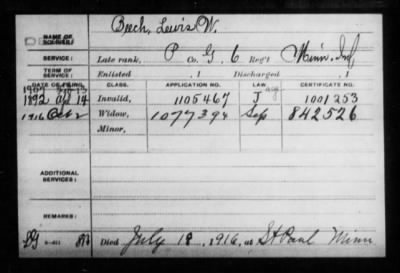 Beech, Lewis W.
NAME OF SOLDIER:
SERVICE: Late rank, P Co. G, 6 Reg't Minn. Inf
TERM OF SERVICE: Enlisted , 1 Discharged , 1
DATE OF FILING. CLASS. APPLICATION NO. LAW. CERTIFICATE NO.
1892 Apr 14 Invalid, 1105467 J 1001253
1916 Oct 2 Widow, 1077394 Sep 842526
Minor,
ADDITIONAL SERVICES:
REMARKS:
Died July 18, 1916, at St Paul Minn